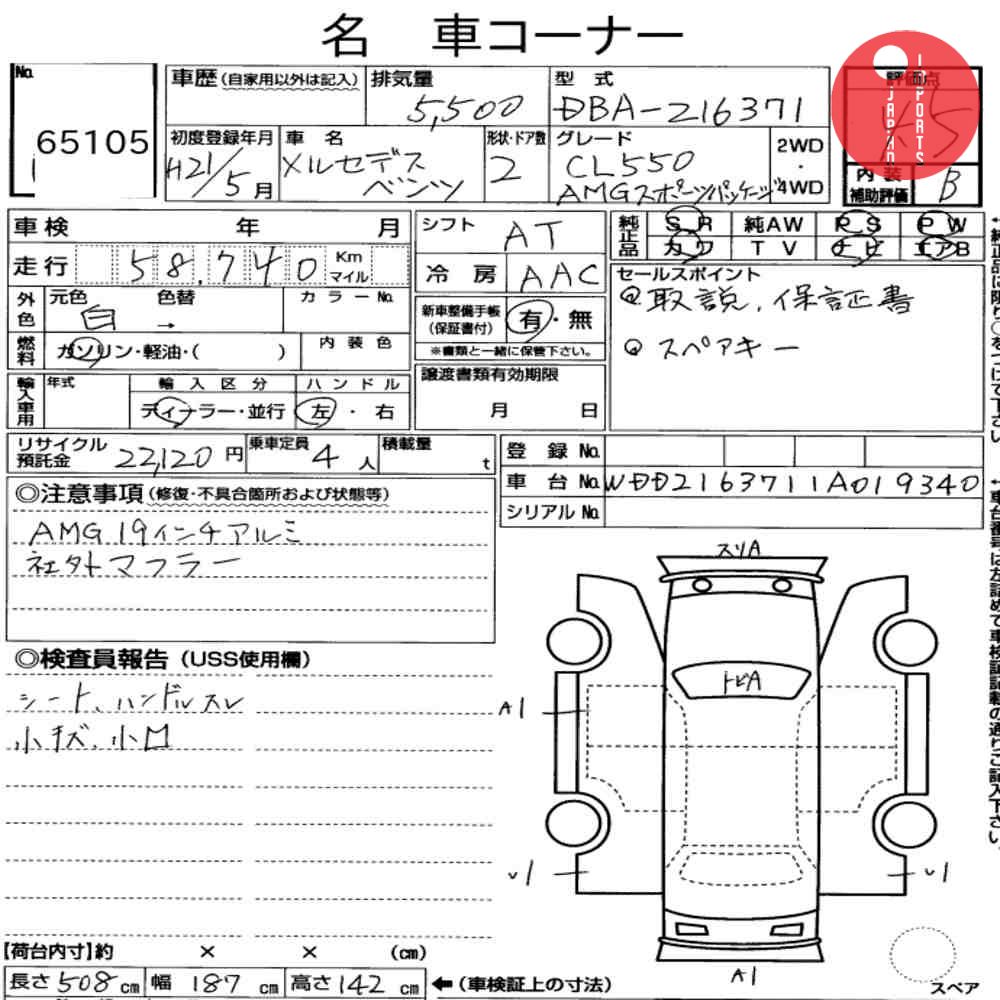 名 車コーナー
No.
65105
車歴(自家用以外は記入)
排気量
5,500
型 式
DBA-216371
評価点
4.5
JAPAN
IMPORTS
初度登録年月
H21/5月
車 名
メルセデス
ベンツ
形状・ドア数
2
グレード
CL550
AMGスポーツパッケージ
2WD
・
4WD
内 装
補助評価
B
車検 年 月
走行 58,740 Km
マイル
シフト
AT
冷 房
AAC
純正品
S R 純AW P S P W
カワ T V ナビ エアB
外色
元色 色替 カラーNo.
白 →
燃料
ガソリン・軽油・( )
内 装 色
新車整備手帳
(保証書付)
有・無
※書類と一緒に保管下さい。
セールスポイント
取説, 保証書
スペアキー
輸入車用
年式
輸 入 区 分
ディーラー・並行
ハ ン ド ル
左 ・ 右
譲渡書類有効期限
月 日
リサイクル
預託金 22,120 円
乗車定員 4 人
積載量 t
登 録 No.
車 台 No. WDD2163711A019340
シリアル No.
◎注意事項(修復・不具合箇所および状態等)
AMG 19インチアルミ
社外マフラー
◎検査員報告(USS使用欄)
シート, ハンドルスレ
小キズ, 小凹
スリA
トビA
A1
A1
【荷台内寸】約 × × (cm)
長さ508cm 幅 187 cm 高さ142 cm ←(車検証上の寸法)
スペア
↑純正品は限り○をつけて下さい
↑車台番号は左詰めで車検証記載の通りご記入下さい。